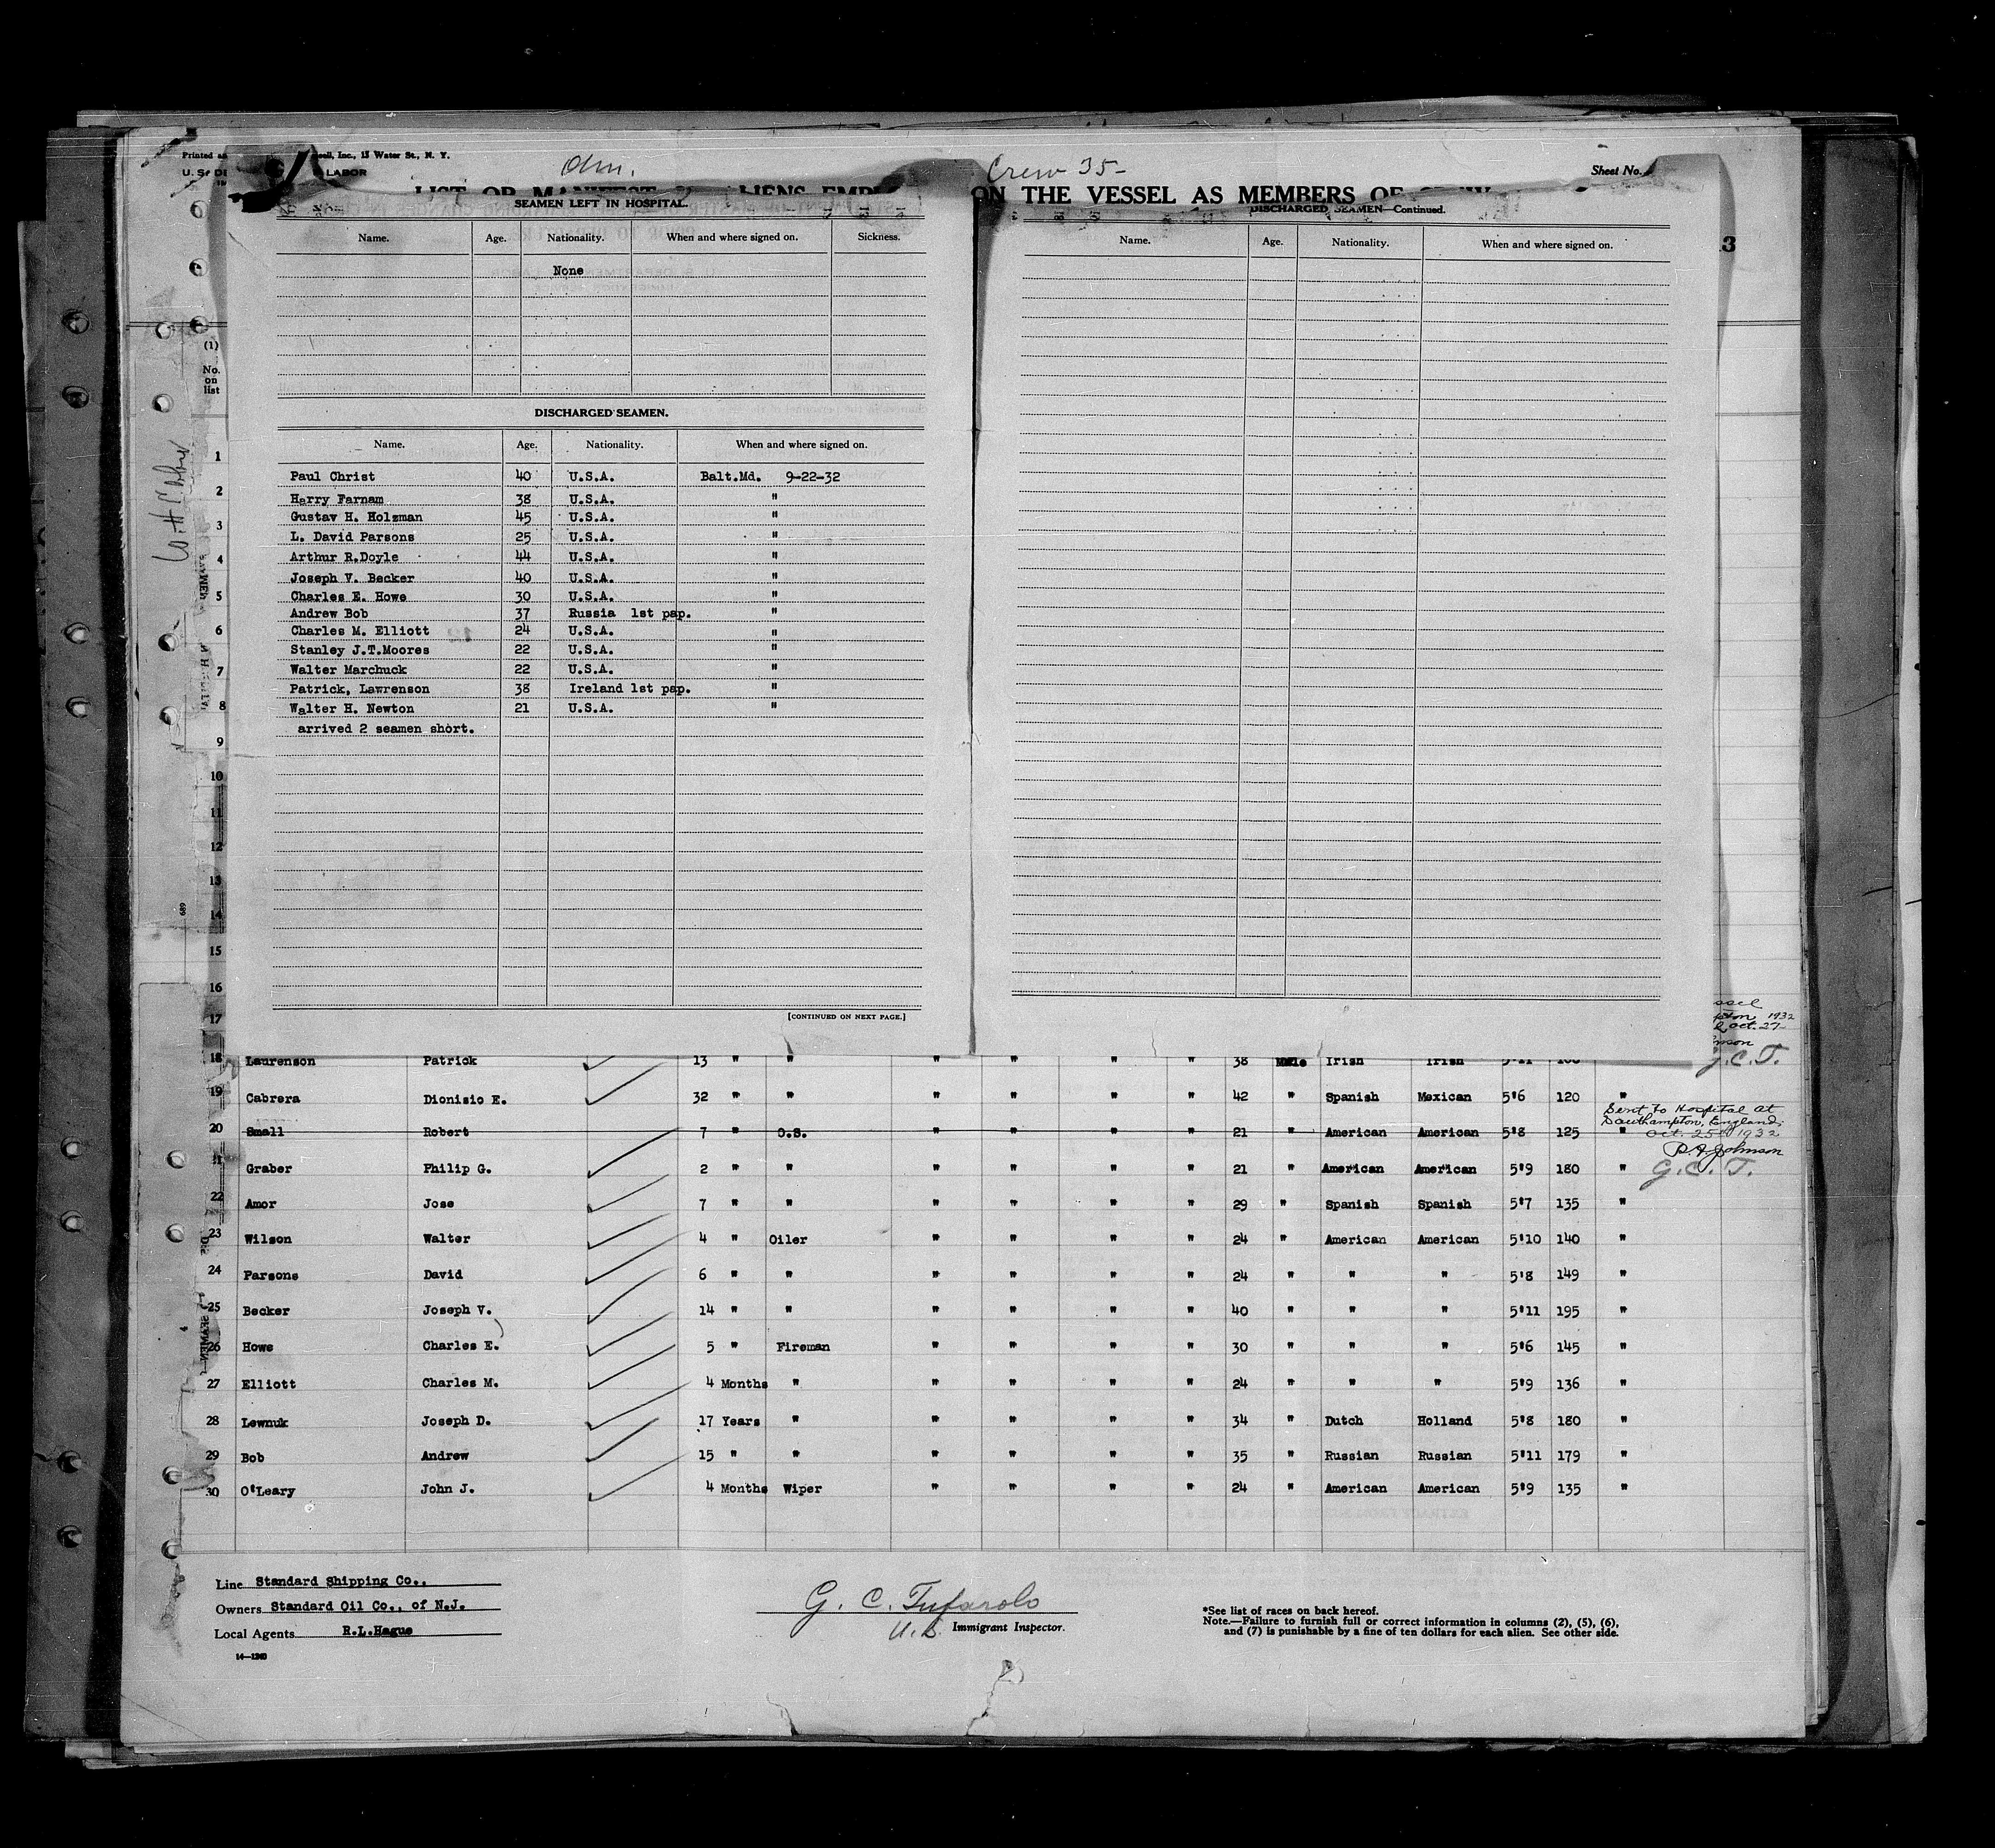 Inc., 13 Water St., N. Y.
LABOR
Crew 35-
Sheet No.
ON THE VESSEL AS MEMBERS OF
SEAMEN LEFT IN HOSPITAL.
Name. Age. Nationality. When and where signed on. Sickness.
None
DISCHARGED SEAMEN.
Name. Age. Nationality. When and where signed on.
Paul Christ 40 U.S.A. Balt.Md. 9-22-32
Harry Farnam 38 U.S.A. "
Gustav H. Holzman 45 U.S.A. "
L. David Parsons 25 U.S.A. "
Arthur R.Doyle 44 U.S.A. "
Joseph V. Becker 40 U.S.A. "
Charles E. Howe 30 U.S.A. "
Andrew Bob 37 Russia 1st pap. "
Charles M. Elliott 24 U.S.A. "
Stanley J.T.Moores 22 U.S.A. "
Walter Marchuck 22 U.S.A. "
Patrick, Lawrenson 38 Ireland 1st pap. "
Walter H. Newton 21 U.S.A. "
arrived 2 seamen short.
[CONTINUED ON NEXT PAGE.]
DISCHARGED SEAMEN—Continued.
Name. Age. Nationality. When and where signed on.
3
(1)
No.
on
list
1
2
3
4
5
6
7
8
9
10
11
12
13
14
15
16
17
1932
Oct. 27
G.C.T.
18 Laurenson Patrick 13 " " " " " " 38 Male Irish Irish 5'11
19 Cabrera Dionisio E. 32 " " " " " " 42 " Spanish Mexican 5'6 120 "
20 Small Robert 7 " O.S. " " " " 21 " American American 5'8 125 "
Sent to Hospital at
Southampton, England,
Oct. 25th 1932
Johnson
G.C.T.
Graber Philip G. 2 " " " " " " 21 " American American 5'9 180 "
22 Amor Jose 7 " " " " " " 29 " Spanish Spanish 5'7 135 "
23 Wilson Walter 4 " Oiler " " " " 24 " American American 5'10 140 "
24 Parsons David 6 " " " " " " 24 " " " 5'8 149 "
25 Becker Joseph V. 14 " " " " " " 40 " " " 5'11 195 "
26 Howe Charles E. 5 " Fireman " " " " 30 " " " 5'6 145 "
27 Elliott Charles M. 4 Months " " " " " 24 " " " 5'9 136 "
28 Lewnuk Joseph D. 17 Years " " " " " 34 " Dutch Holland 5'8 180 "
29 Bob Andrew 15 " " " " " " 35 " Russian Russian 5'11 179 "
30 O'Leary John J. 4 Months Wiper " " " " 24 " American American 5'9 135 "
Line Standard Shipping Co.,
Owners Standard Oil Co., of N.J.
Local Agents R.L.Hague
14—1240
G. C. Tufarolo
Immigrant Inspector.
*See list of races on back hereof.
Note.—Failure to furnish full or correct information in columns (2), (5), (6),
and (7) is punishable by a fine of ten dollars for each alien. See other side.